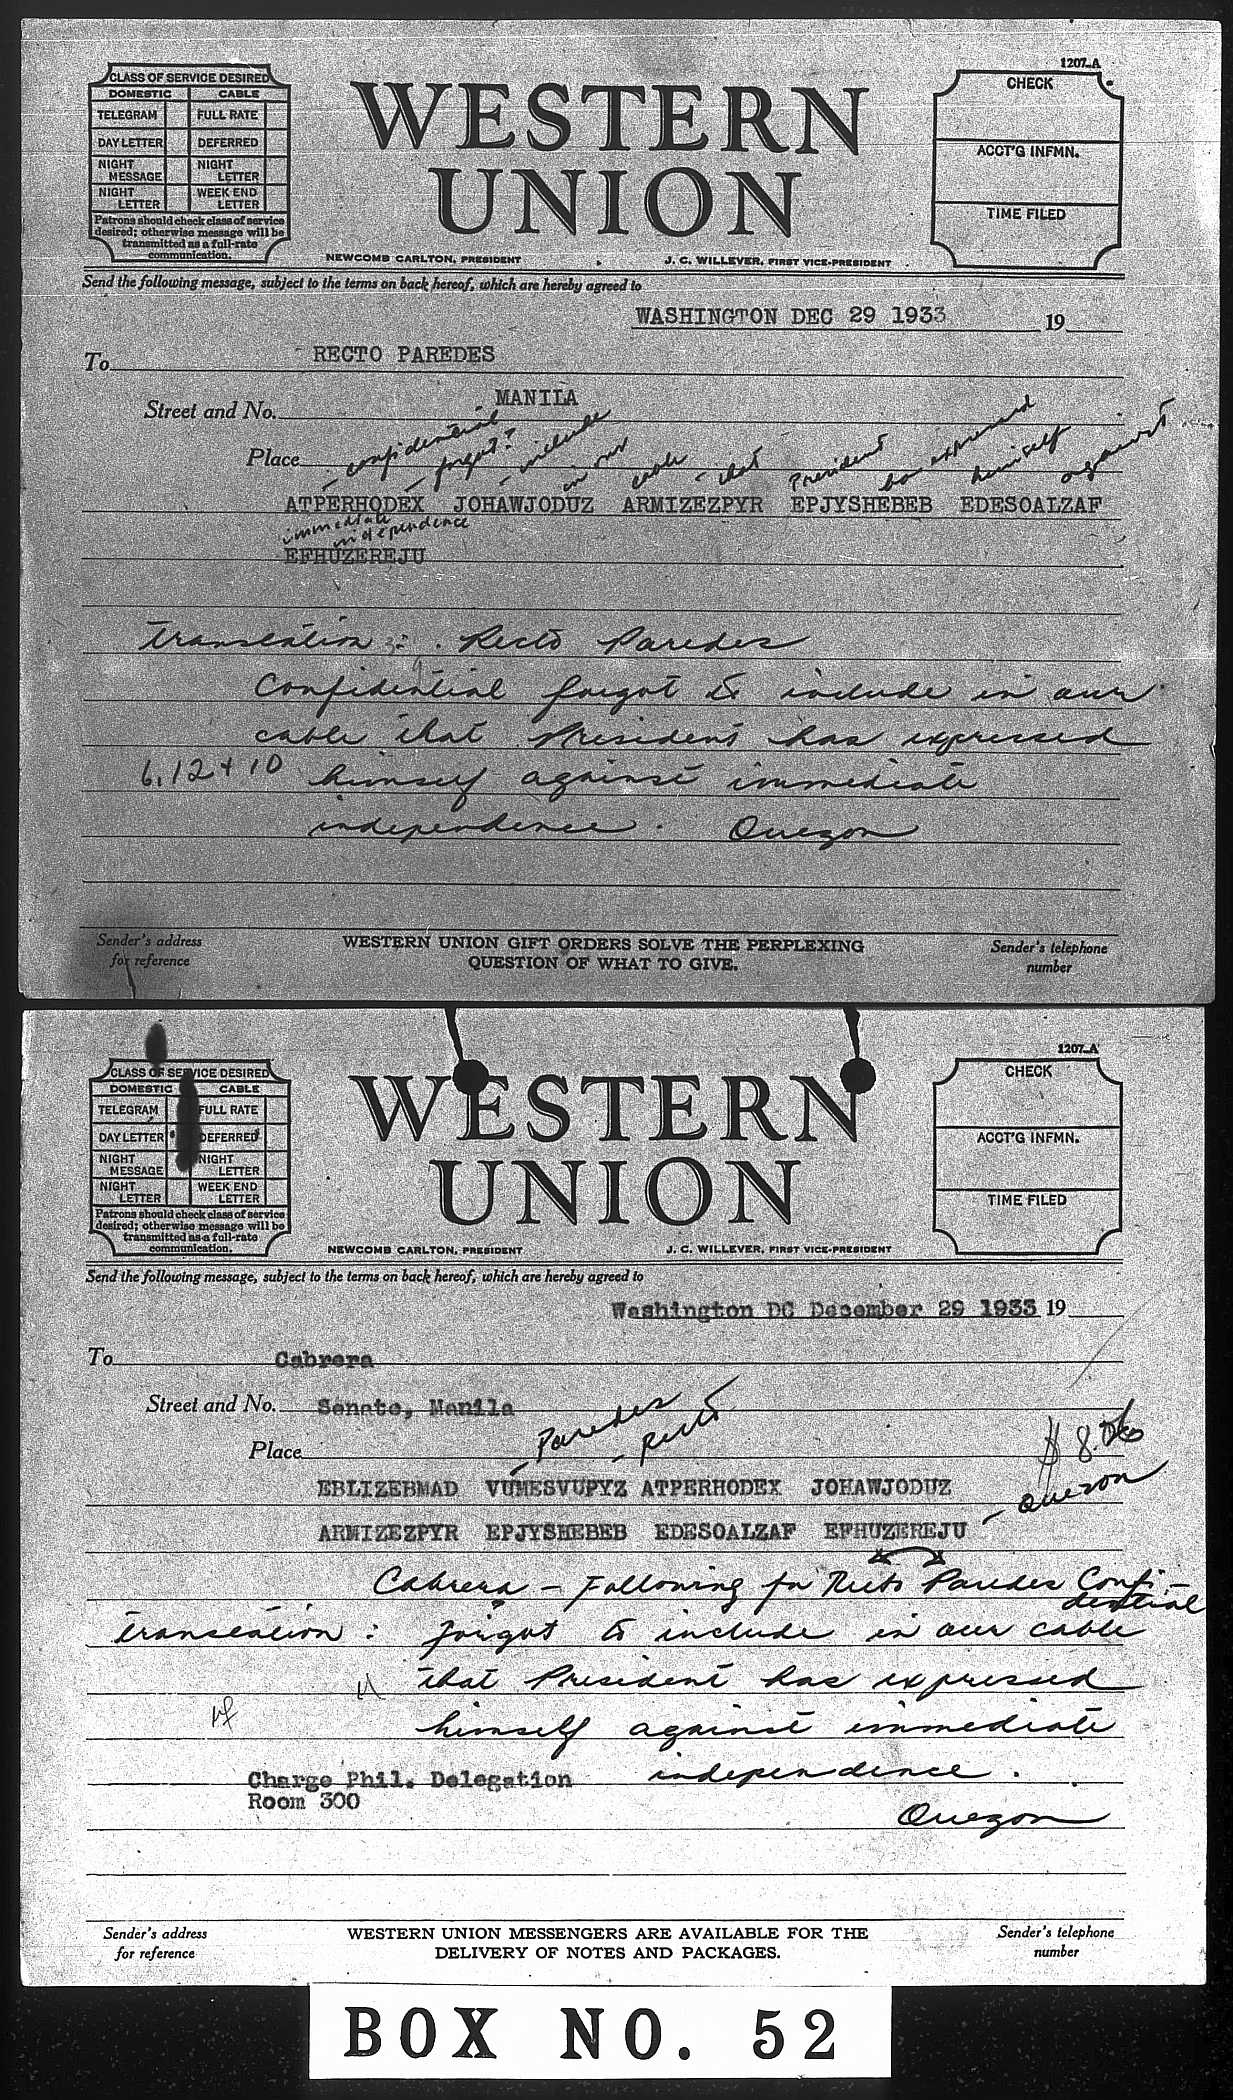 1207-A
CLASS OF SERVICE DESIRED
DOMESTIC CABLE
TELEGRAM FULL RATE
DAY LETTER DEFERRED
NIGHT MESSAGE NIGHT LETTER
NIGHT LETTER WEEK END LETTER
Patrons should check class of service
desired; otherwise message will be
transmitted as a full-rate
communication.
WESTERN
UNION
NEWCOMB CARLTON, PRESIDENT J. C. WILLEVER, FIRST VICE-PRESIDENT
CHECK
ACCT'G INFMN.
TIME FILED
Send the following message, subject to the terms on back hereof, which are hereby agreed to
WASHINGTON DEC 29 1933 19
To RECTO PAREDES
Street and No. MANILA
Place
confidential forgot? include in our cable that President has expressed himself against
ATPERHODEX JOHAWJODUZ ARMIZEZPYR EPJYSHEBEB EDESOALZAF
immediate
independence
EFHUZEREJU
Translation: Recto Paredes
Confidential forgot to include in our
cable that President has expressed
6,12+10 himself against immediate
independence. Quezon
Sender's address
for reference
WESTERN UNION GIFT ORDERS SOLVE THE PERPLEXING
QUESTION OF WHAT TO GIVE.
Sender's telephone
number
1207-A
CLASS OF SERVICE DESIRED
DOMESTIC CABLE
TELEGRAM FULL RATE
DAY LETTER DEFERRED
NIGHT MESSAGE NIGHT LETTER
NIGHT LETTER WEEK END LETTER
Patrons should check class of service
desired; otherwise message will be
transmitted as a full-rate
communication.
WESTERN
UNION
NEWCOMB CARLTON, PRESIDENT J. C. WILLEVER, FIRST VICE-PRESIDENT
CHECK
ACCT'G INFMN.
TIME FILED
Send the following message, subject to the terms on back hereof, which are hereby agreed to
Washington DC December 29 1933 19
To Cabrera
Street and No. Senate, Manila
Place
Paredes Recto
EBLIZEBMAD VUMESVUPYZ ATPERHODEX JOHAWJODUZ
Quezon
ARMIZEZPYR EPJYSHEBEB EDESOALZAF EFHUZEREJU
Cabrera - Following for Recto Paredes Confi-
dential
translation: forgot to include in our cable
that President has expressed
himself against immediate
independence.
Charge Phil. Delegation
Room 300
Quezon
Sender's address
for reference
WESTERN UNION MESSENGERS ARE AVAILABLE FOR THE
DELIVERY OF NOTES AND PACKAGES.
Sender's telephone
number
BOX NO. 52